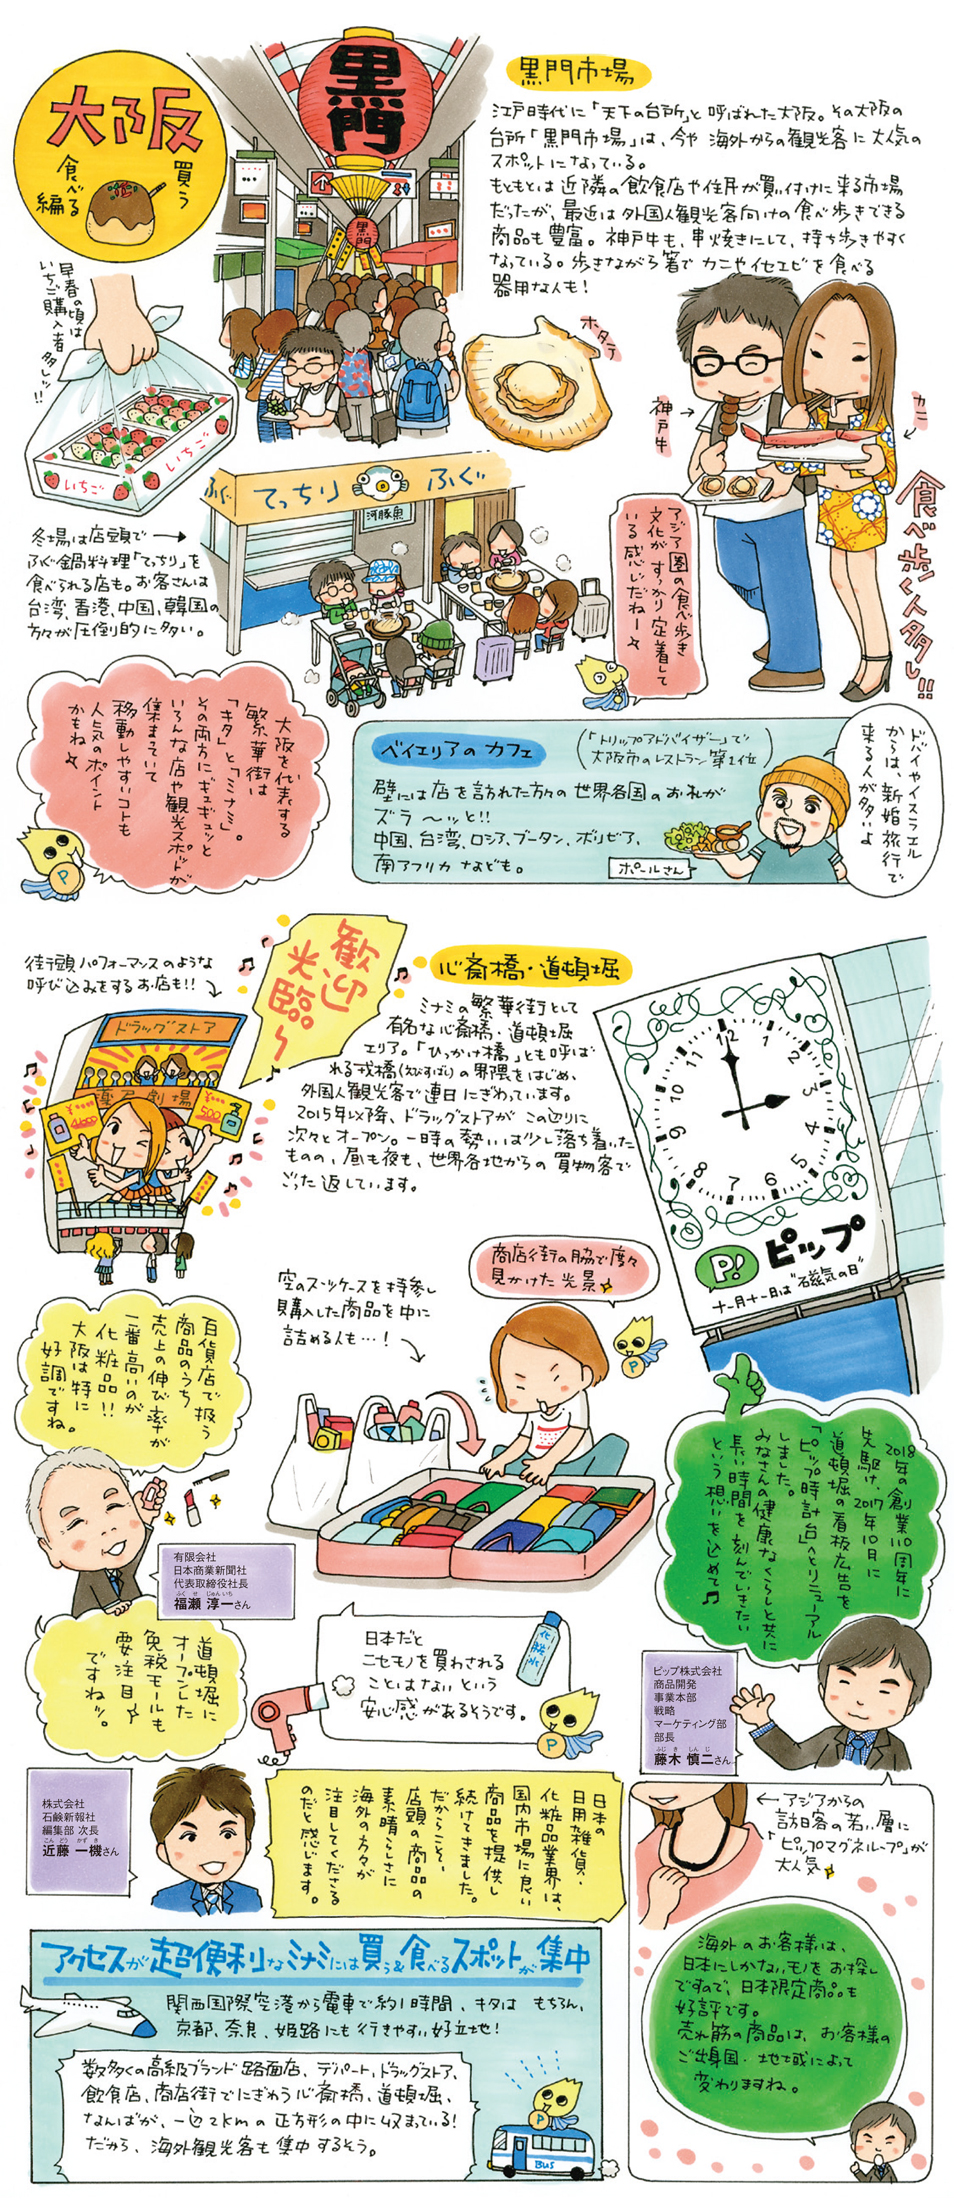 大阪
買う
食べる
編
黒門
黒門
黒門市場
江戸時代に「天下の台所」と呼ばれた大阪。その大阪の
台所「黒門市場」は、今や海外からの観光客に大人気の
スポットになっている。
もともとは近隣の飲食店や住民が買い付けに来る市場
だったが、最近は外国人観光客向けの食べ歩きできる
商品も豊富。神戸牛も、串焼きにして、持ち歩きやすく
なっている。歩きながら箸でカニやイセエビを食べる
器用な人も!
早春の頃は
いちご購入者
多しッ!!
いちご
いちご
ホタテ
神戸牛
カニ
食べ歩く人多し!!
ふぐ
てっちり
ふぐ
河豚魚
冬場は店頭で
ふぐ鍋料理「てっちり」を
食べられる店も。お客さんは
台湾、香港、中国、韓国の
方々が圧倒的に多い。
アジア圏の食べ歩き
文化がすっかり定着して
いる感じだねー☆
大阪を代表する
繁華街は
「キタ」と「ミナミ」。
その両方にギュギュッと
いろんな店や観光スポットが
集まっていて
移動しやすいコトも
人気のポイント
かもね☆
P
ベイエリアのカフェ
(「トリップアドバイザー」で
大阪市のレストラン第1位)
壁には店を訪れた方々の世界各国のお札が
ズラ〜ッと!!
中国、台湾、ロシア、ブータン、ボリビア、
南アフリカなども。
ポールさん
ドバイやイスラエル
からは、新婚旅行で
来る人が多いよ
街頭パフォーマンスのような
呼び込みをするお店も!!
歓迎
光臨〜
ドラッグストア
薬品劇場
500
心斎橋・道頓堀
ミナミの繁華街として
有名な心斎橋・道頓堀
エリア。「ひっかけ橋」とも呼ば
れる戎橋(えびすばし)の界隈をはじめ、
外国人観光客で連日にぎわっています。
2015年以降、ドラッグストアがこの辺りに
次々とオープン。一時の勢いは少し落ち着いた
ものの、昼も夜も、世界各地からの買物客で
ごった返しています。
12
1
2
3
4
5
6
7
8
9
10
11
P!
ピップ
十一月十一日は"磁気の日"
商店街の脇で度々
見かけた光景
空のスーツケースを持参し
購入した商品を中に
詰める人も…!
P
百貨店で扱う
商品のうち
売上の伸び率が
一番高いのが
化粧品!!
大阪は特に
好調ですね。
有限会社
日本商業新聞社
代表取締役社長
ふくせ じゅんいち
福瀬 淳一さん
道頓堀に
オープンした
免税モールも
要注目
ですねッ。
2018年の創業110周年に
先駆け、2017年10月に
道頓堀の看板広告を
「ピップ時計台」へとリニューアル
しました。
みなさんの健康なくらしと共に
長い時間を刻んでいきたい
という想いを込めて♫
日本だと
ニセモノを買わされる
ことはないという
安心感があるそうです。
化粧水
P
ピップ株式会社
商品開発
事業本部
戦略
マーケティング部
部長
ふじき しんじ
藤木 慎二さん
株式会社
石鹸新報社
編集部 次長
こんどう かずき
近藤 一機さん
日本の
日用雑貨・
化粧品業界は、
国内市場に良い
商品を提供し
続けてきました。
だからこそ、
店頭の商品の
素晴らしさに
海外の方々が
注目してくださる
のだと感じます。
←アジアからの
訪日客の若い層に
「ピップマグネループ」が
大人気
海外のお客様は、
日本にしかないモノをお探し
ですので、日本限定商品も
好評です。
売れ筋の商品は、お客様の
ご出身国・地域によって
変わりますね。
アクセスが超便利なミナミには買う&食べるスポットが集中
関西国際空港から電車で約1時間、キタはもちろん、
京都、奈良、姫路にも行きやすい好立地!
数多くの高級ブランド路面店、デパート、ドラッグストア、
飲食店、商店街でにぎわう心斎橋、道頓堀、
なんばが、一辺2kmの正方形の中に収まっている!
だから、海外観光客も集中するそう。
P
BUS